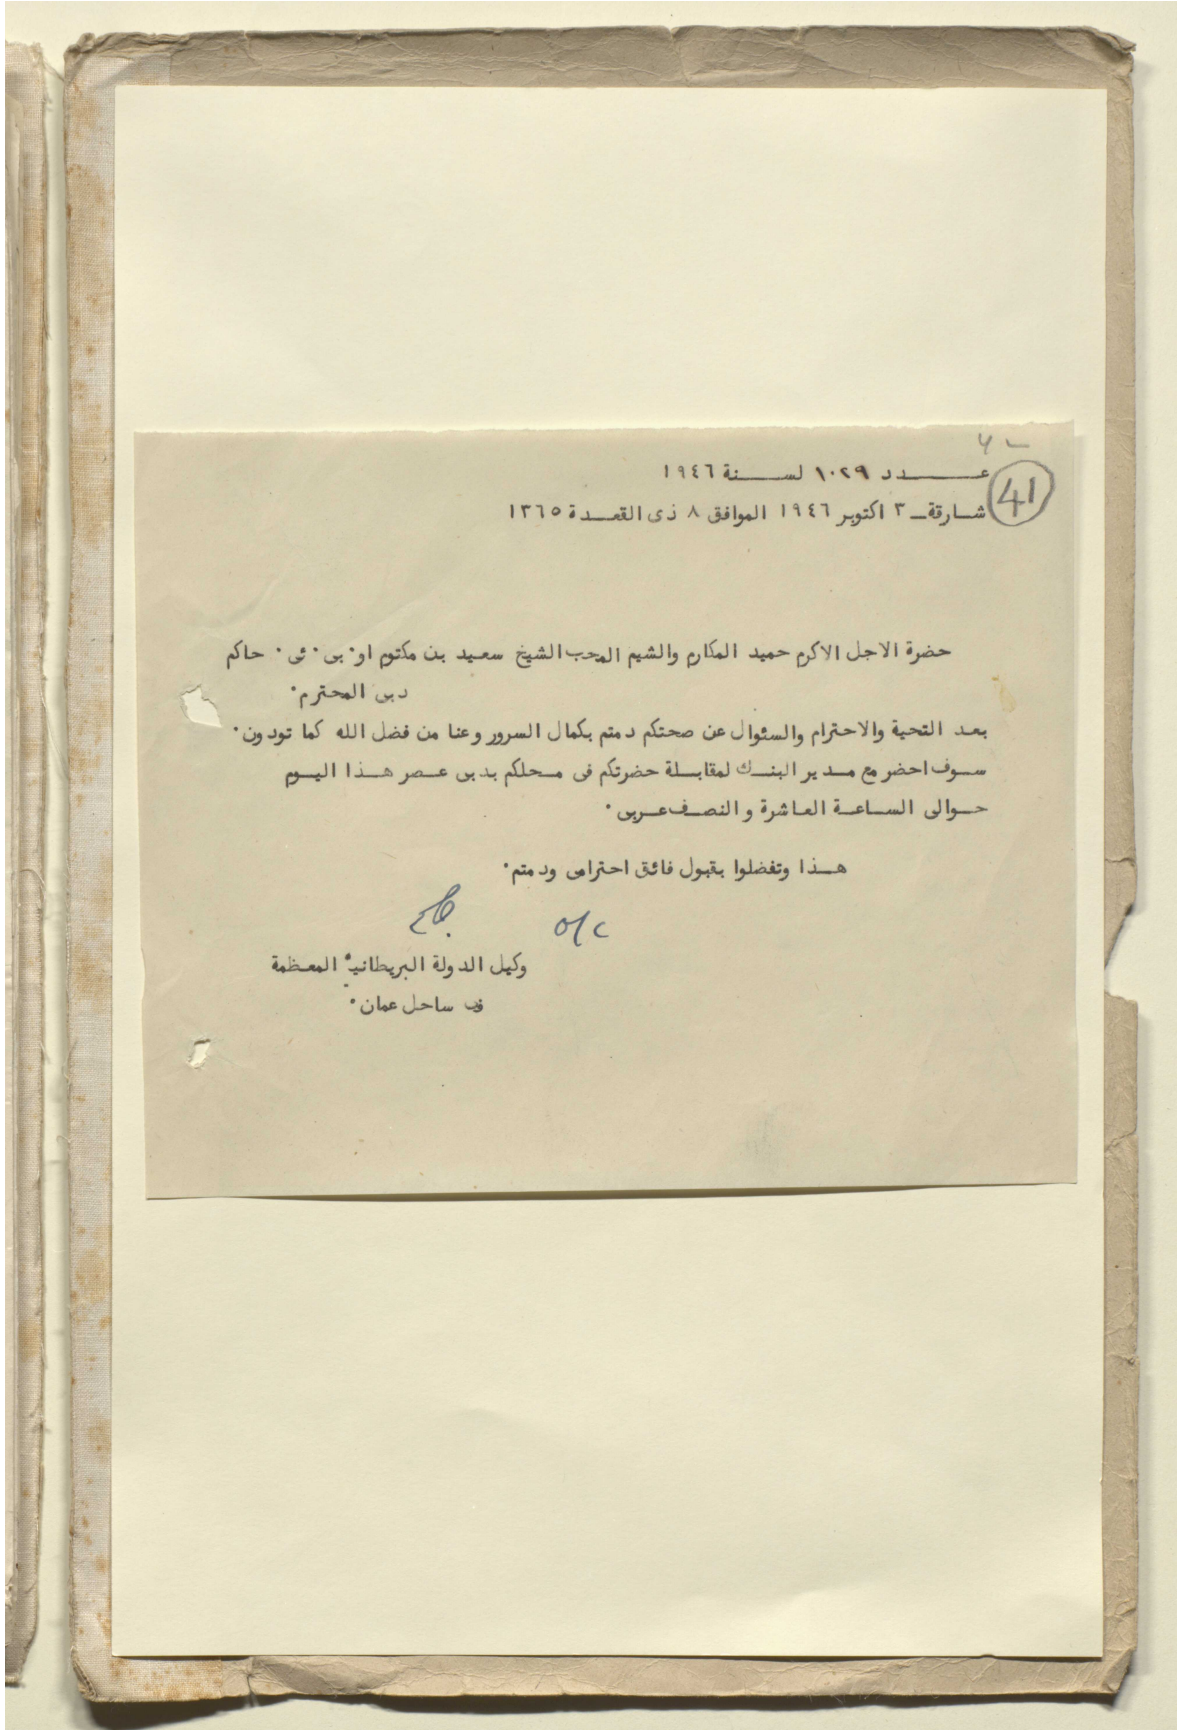 عدد ١٠٢٩ لسنة ١٩٤٦
41
شارقة ـ ٣ اكتوبر ١٩٤٦ الموافق ٨ ذى القعدة ١٣٦٥
حضرة الاجل الاكرم حميد المكارم والشيم المحب الشيخ سعيد بن مكتوم او٠ بى٠ ئى٠ حاكم
دبى المحترم٠
بعد التحية والاحترام والسئوال عن صحتكم دمتم بكمال السرور وعنا من فضل الله كما تودون٠
سوف احضر مع مدير البنك لمقابلة حضرتكم فى محلكم بدبى عصر هذا اليوم
حوالى الساعة العاشرة والنصف عربى٠
هذا وتفضلوا بقبول فائق احترامى ودمتم٠
o/c
وكيل الدولة البريطانية المعظمة
فى ساحل عمان٠